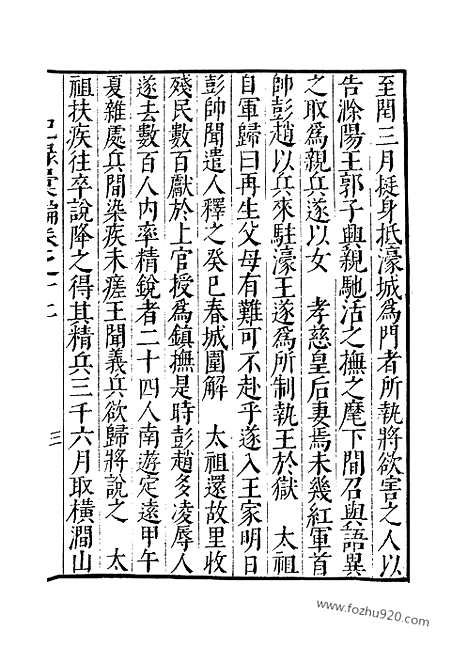 至閏三月挺身抵濠城爲門者所執將欲害之人以
告滁陽王郭子興親馳活之撫之麾下間召與語異
之取爲親兵遂以女　孝慈皇后妻焉未幾紅軍首
帥彭趙以兵來駐濠王遂爲所制執王於獄　太祖
自軍歸曰再生父母有難可不赴乎遂入王家明日
彭帥聞遣人釋之癸巳春城圍解　太祖還故里收
殘民數百獻於上官授爲鎮撫是時彭趙多凌辱人
遂去數百人内率精銳者二十四人南遊定遠甲午
夏雜處兵間染疾未瘥王聞義兵欲歸將說之　太
祖扶疾往卒說降之得其精兵三千六月取橫澗山
紀錄彙編卷之十一
三
www.fozhu920.com